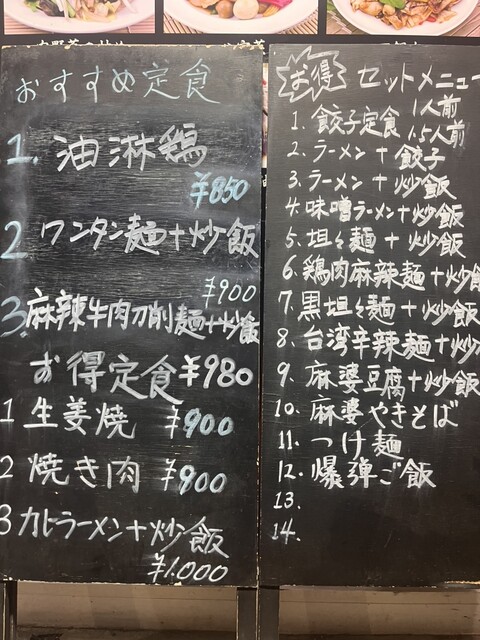 おすすめ定食
1. 油淋鶏
¥850
2 ワンタン麺+炒飯
¥900
3. 麻辣牛肉刀削麺+炒飯
¥980
お得定食
1 生姜焼 ¥900
2 焼き肉 ¥900
3 カレーラーメン+炒飯
¥1.000
お得 セットメニュー
1. 餃子定食 1人前 1.5人前
2. ラーメン+餃子
3. ラーメン+炒飯
4. 味噌ラーメン+炒飯
5. 坦々麺+炒飯
6. 鶏肉麻辣麺+炒飯
7. 黒坦々麺+炒飯
8. 台湾辛辣麺+炒
9. 麻婆豆腐+炒飯
10. 麻婆やきそば
11. つけ麺
12. 爆弾ご飯
13.
14.